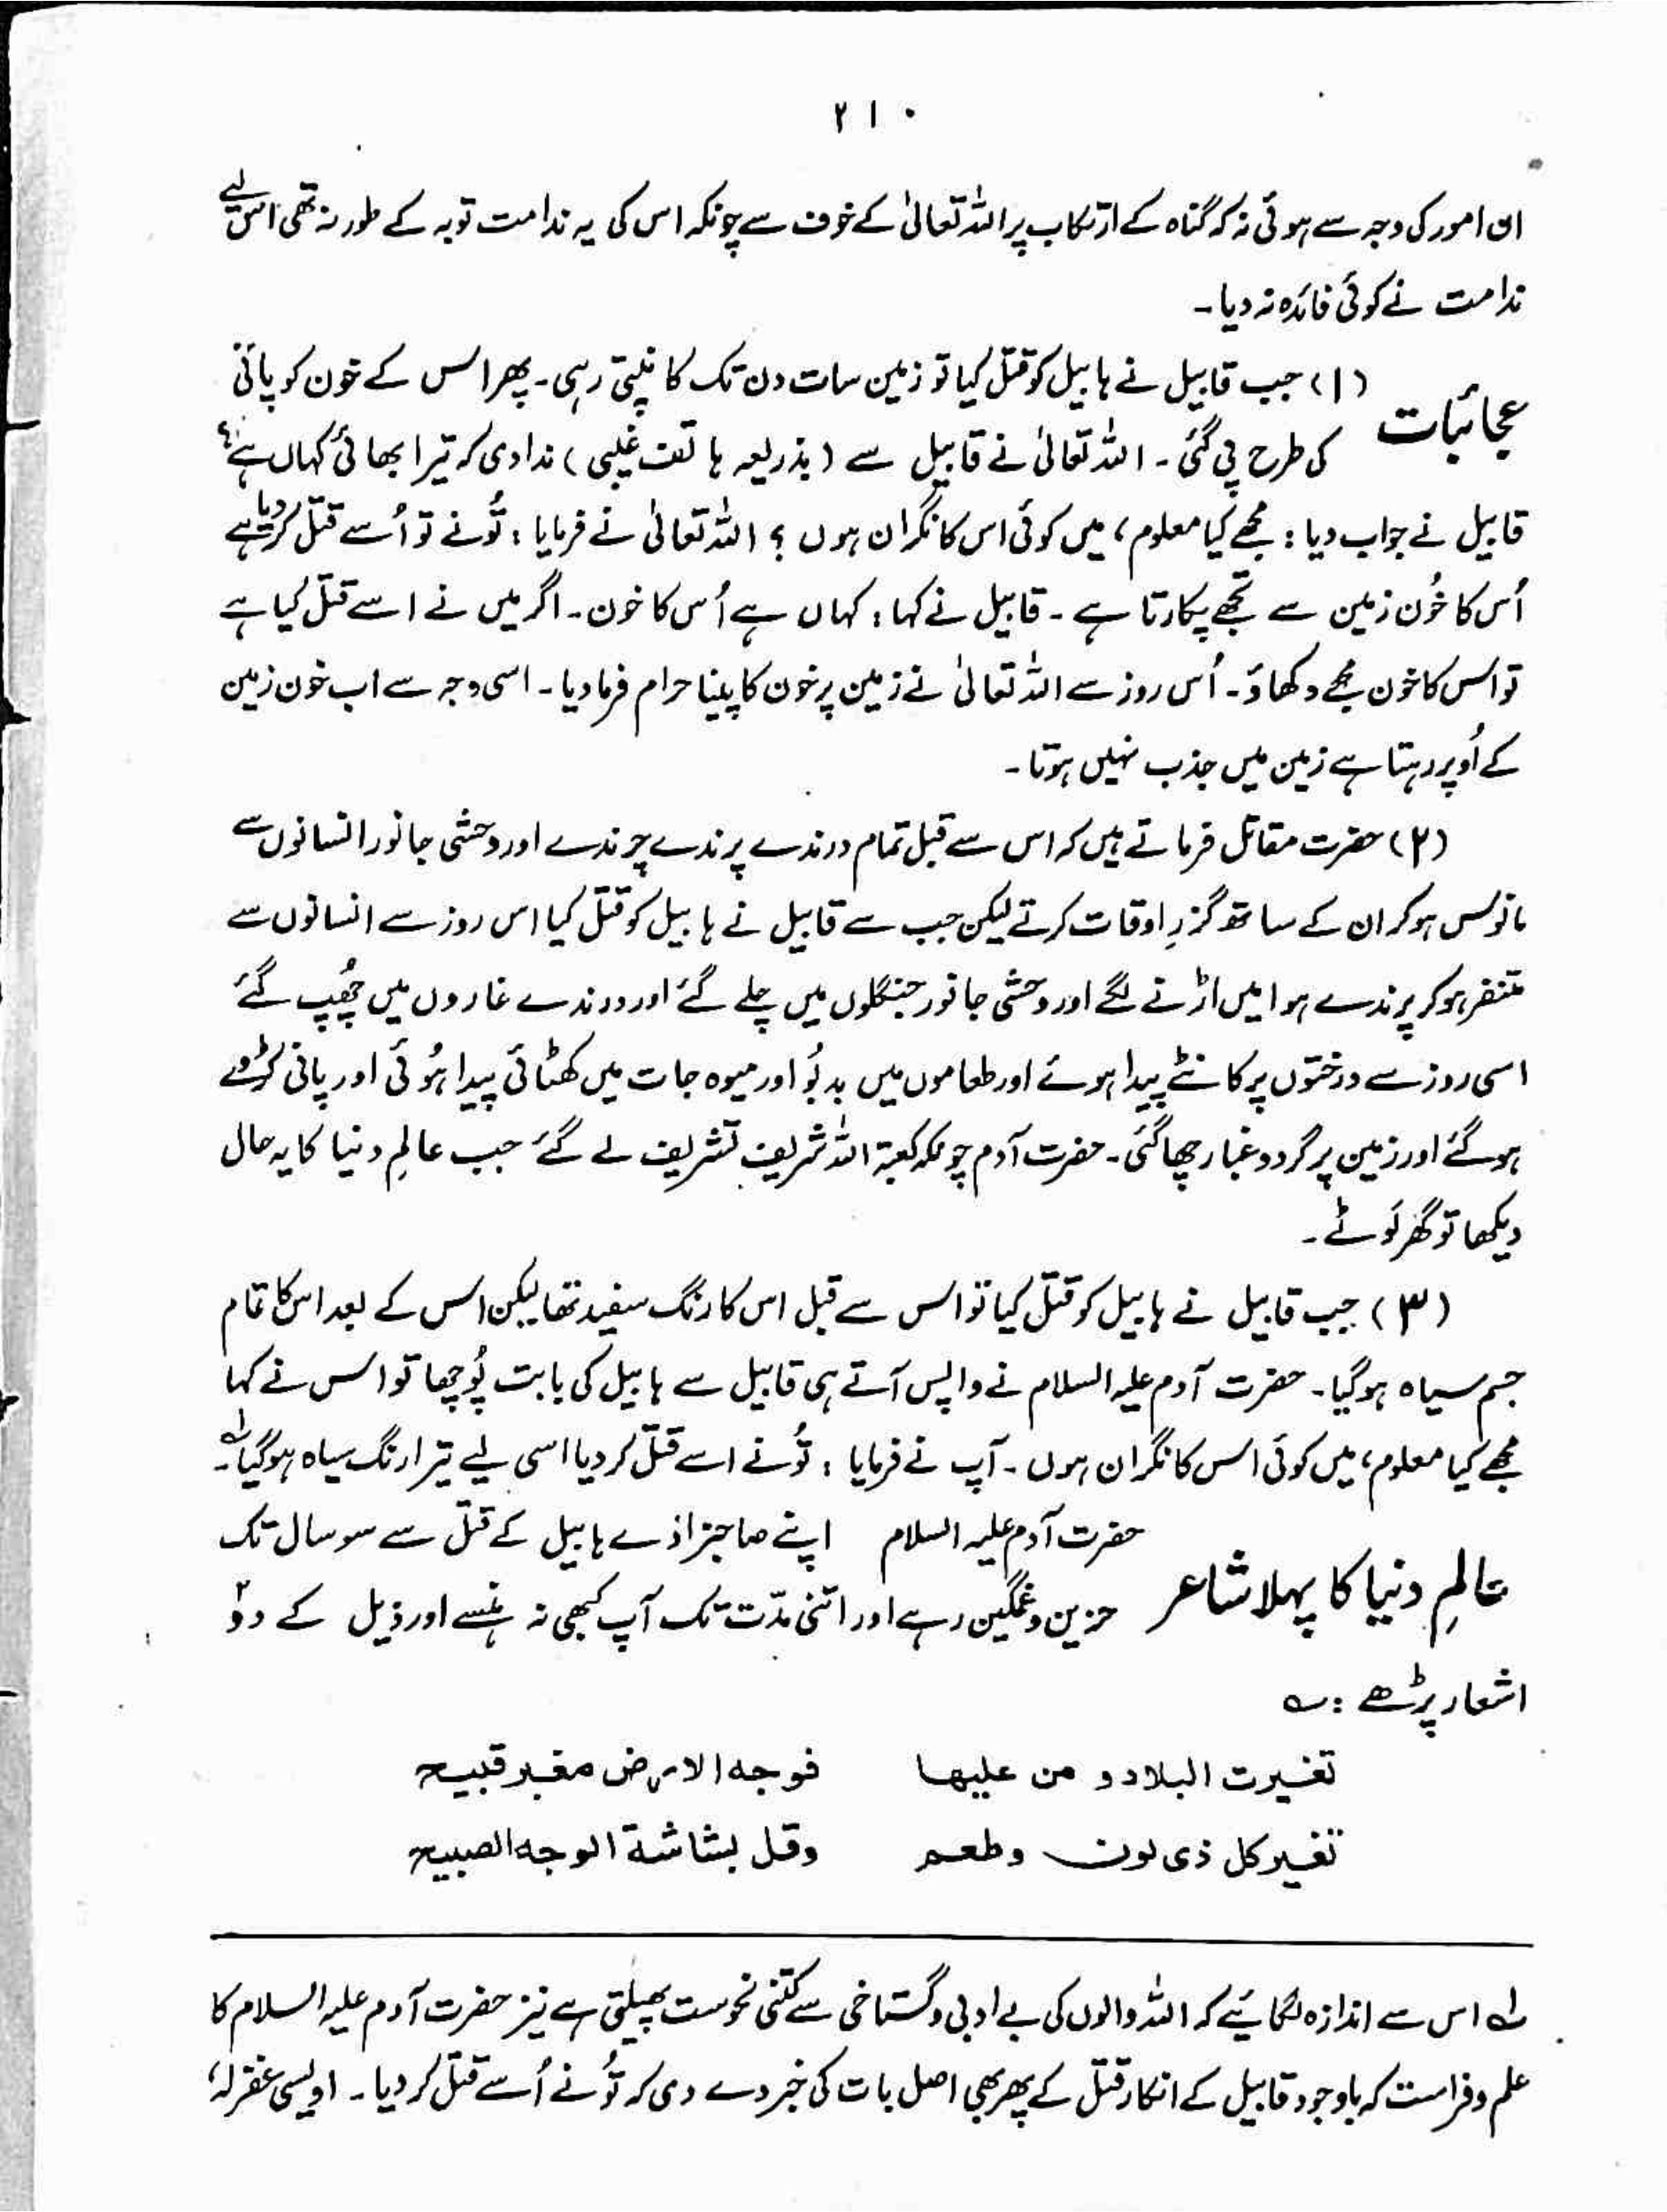 ۲۱۰
ان امور کی وجہ سے ہوئی نہ کہ گناہ کے ارتکاب پر اللہ تعالیٰ کے خوف سے چونکہ اس کی یہ ندامت توبہ کے طور نہ تھی اس لیے
ندامت نے کوئی فائدہ نہ دیا۔
عجائبات (۱) جب قابیل نے ہابیل کو قتل کیا تو زمین سات دن تک کانپتی رہی۔ پھر اس کے خون کو پانی
کی طرح پی گئی۔ اللہ تعالیٰ نے قابیل سے (بذریعہ ہاتف غیبی) ندا دی کہ تیرا بھائی کہاں ہے؟
قابیل نے جواب دیا: مجھے کیا معلوم، میں کوئی اس کا نگران ہوں؟ اللہ تعالیٰ نے فرمایا: تُو نے تو اُسے قتل کر دیا ہے
اُس کا خُون زمین سے تجھے پکارتا ہے۔ قابیل نے کہا: کہاں ہے اُس کا خون۔ اگر میں نے اسے قتل کیا ہے
تو اس کا خون مجھے دکھاؤ۔ اُس روز سے اللہ تعالیٰ نے زمین پر خون کا پینا حرام فرما دیا۔ اسی وجہ سے اب خون زمین
کے اُوپر رہتا ہے زمین میں جذب نہیں ہوتا۔
(۲) حضرت مقاتل فرماتے ہیں کہ اس سے قبل تمام درندے پرندے چرندے اور وحشی جانور انسانوں سے
مانوس ہو کر ان کے ساتھ گزرِ اوقات کرتے لیکن جب سے قابیل نے ہابیل کو قتل کیا اس روز سے انسانوں سے
متنفر ہو کر پرندے ہوا میں اڑنے لگے اور وحشی جانور جنگلوں میں چلے گئے اور درندے غاروں میں چُھپ گئے
اسی روز سے درختوں پر کانٹے پیدا ہوئے اور طعاموں میں بدبُو اور میوہ جات میں کھٹائی پیدا ہُوئی اور پانی کڑوے
ہو گئے اور زمین پر گرد و غبار چھا گئی۔ حضرت آدم چونکہ کعبۃ اللہ شریف تشریف لے گئے جب عالمِ دنیا کا یہ حال
دیکھا تو گھر لَوٹے۔
(۳) جب قابیل نے ہابیل کو قتل کیا تو اس سے قبل اس کا رنگ سفید تھا لیکن اس کے بعد اس کا تمام
جسم سیاہ ہو گیا۔ حضرت آدم علیہ السلام نے واپس آتے ہی قابیل سے ہابیل کی بابت پُوچھا تو اس نے کہا
مجھے کیا معلوم، میں کوئی اس کا نگران ہوں۔ آپ نے فرمایا: تُو نے اسے قتل کر دیا اسی لیے تیرا رنگ سیاہ ہو گیا۔ لہ
عالمِ دنیا کا پہلا شاعر حضرت آدم علیہ السلام اپنے صاحبزادے ہابیل کے قتل سے سو سال تک
حزین و غمگین رہے اور اتنی مدّت تک آپ کبھی نہ ہنسے اور ذیل کے دو۲
اشعار پڑھے: ؎
تغیرت البلاد و من علیها فوجه الارض مغبر قبیح
تغیر کل ذی لون وطعم وقل بشاشة الوجه الصبیح
لہ اس سے اندازہ لگائیے کہ اللہ والوں کی بے ادبی و گستاخی سے کتنی نحوست پھیلتی ہے نیز حضرت آدم علیہ السلام کا
علم و فراست کہ باوجود قابیل کے انکار قتل کے پھر بھی اصل بات کی خبر دے دی کہ تُو نے اُسے قتل کر دیا۔ اویسی غفرلہٗ